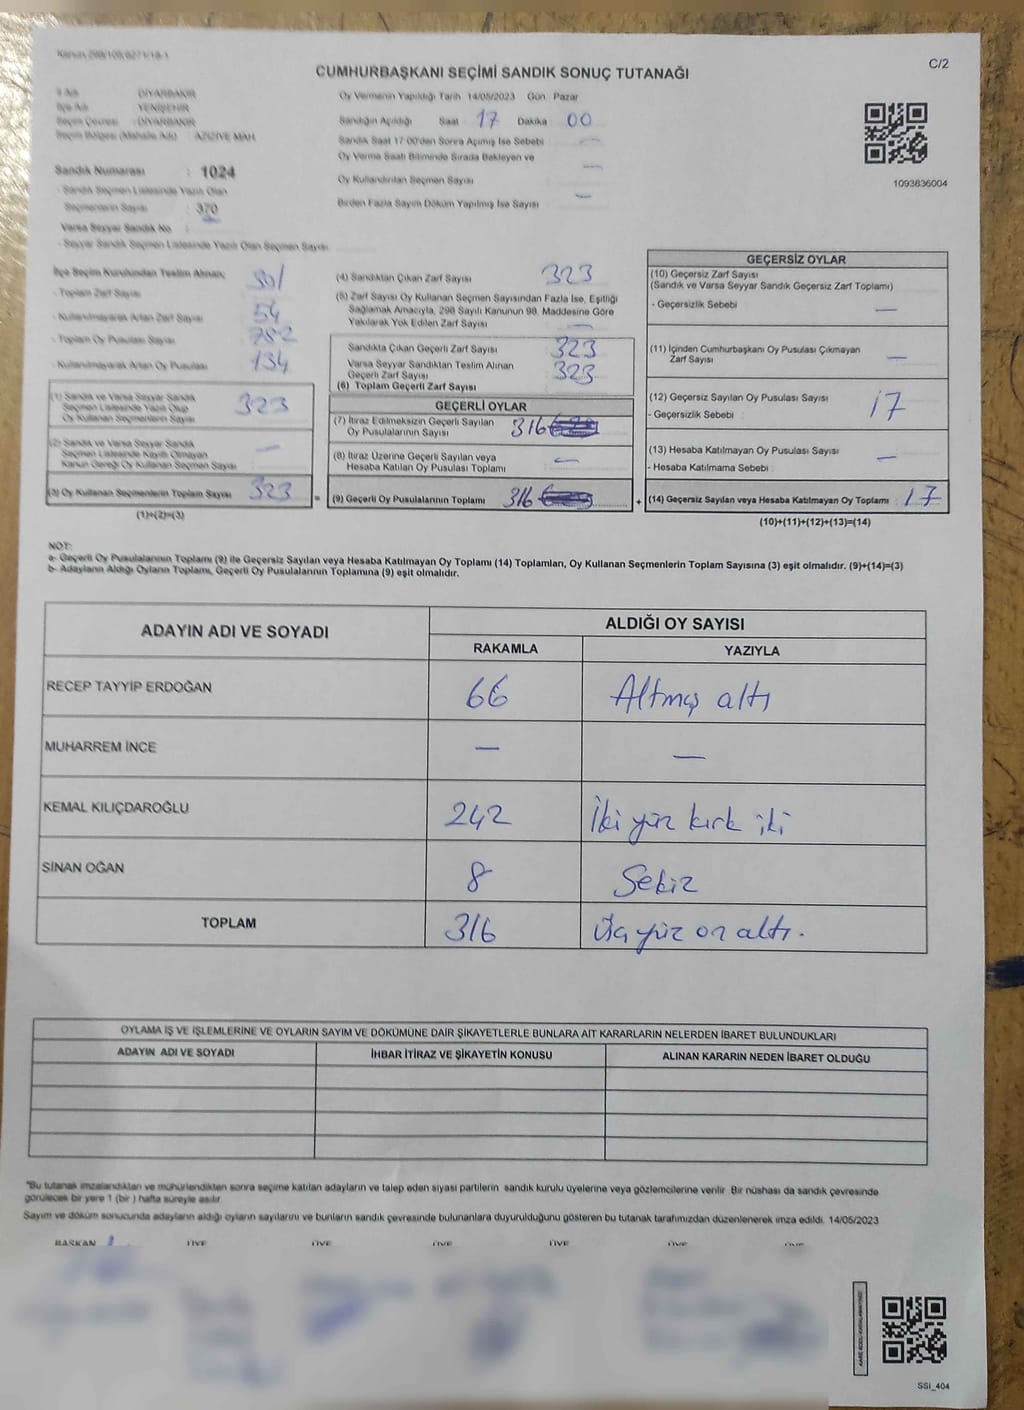 Kanun, 298/105, 6271/18-1
C/2
CUMHURBAŞKANI SEÇİMİ SANDIK SONUÇ TUTANAĞI
İl Adı : DİYARBAKIR
İlçe Adı : YENİŞEHİR
Seçim Çevresi : DİYARBAKIR
Seçim Bölgesi (Mahalle Adı) : AZİZİYE MAH.
Sandık Numarası : 1024
- Sandık Seçmen Listesinde Yazılı Olan
Seçmenlerin Sayısı : 370
Varsa Seyyar Sandık No :
- Seyyar Sandık Seçmen Listesinde Yazılı Olan Seçmen Sayısı
Oy Vermenin Yapıldığı Tarih 14/05/2023 Gün Pazar
Sandığın Açıldığı Saat 17 Dakika 00
Sandık Saat 17:00'den Sonra Açılmış İse Sebebi —
Oy Verme Saati Bitiminde Sırada Bekleyen ve
Oy Kullandırılan Seçmen Sayısı —
Birden Fazla Sayım Döküm Yapılmış İse Sayısı —
1093836004
İlçe Seçim Kurulundan Teslim Alınan;
- Toplam Zarf Sayısı
- Kullanılmayarak Artan Zarf Sayısı 54
- Toplam Oy Pusulası Sayısı
- Kullanılmayarak Artan Oy Pusulası 134
(1) Sandık ve Varsa Seyyar Sandık
Seçmen Listesinde Yazılı Olup
Oy Kullanan Seçmenlerin Sayısı 323
(2) Sandık ve Varsa Seyyar Sandık
Seçmen Listesinde Kayıtlı Olmayan
Kanun Gereği Oy Kullanan Seçmen Sayısı —
(3) Oy Kullanan Seçmenlerin Toplam Sayısı 323
(1)+(2)=(3)
(4) Sandıktan Çıkan Zarf Sayısı 323
(5) Zarf Sayısı Oy Kullanan Seçmen Sayısından Fazla İse, Eşitliği
Sağlamak Amacıyla, 298 Sayılı Kanunun 98. Maddesine Göre
Yakılarak Yok Edilen Zarf Sayısı —
Sandıkta Çıkan Geçerli Zarf Sayısı 323
Varsa Seyyar Sandıktan Teslim Alınan
Geçerli Zarf Sayısı 323
(6) Toplam Geçerli Zarf Sayısı
GEÇERLİ OYLAR
(7) İtiraz Edilmeksizin Geçerli Sayılan
Oy Pusulalarının Sayısı 316
(8) İtiraz Üzerine Geçerli Sayılan veya
Hesaba Katılan Oy Pusulası Toplamı —
= (9) Geçerli Oy Pusulalarının Toplamı 316
GEÇERSİZ OYLAR
(10) Geçersiz Zarf Sayısı
(Sandık ve Varsa Seyyar Sandık Geçersiz Zarf Toplamı)
- Geçersizlik Sebebi —
(11) İçinden Cumhurbaşkanı Oy Pusulası Çıkmayan
Zarf Sayısı —
(12) Geçersiz Sayılan Oy Pusulası Sayısı 17
- Geçersizlik Sebebi :
(13) Hesaba Katılmayan Oy Pusulası Sayısı —
- Hesaba Katılmama Sebebi
+ (14) Geçersiz Sayılan veya Hesaba Katılmayan Oy Toplamı : 17
(10)+(11)+(12)+(13)=(14)
NOT:
a- Geçerli Oy Pusulalarının Toplamı (9) ile Geçersiz Sayılan veya Hesaba Katılmayan Oy Toplamı (14) Toplamları, Oy Kullanan Seçmenlerin Toplam Sayısına (3) eşit olmalıdır. (9)+(14)=(3)
b- Adayların Aldığı Oyların Toplamı, Geçerli Oy Pusulalarının Toplamına (9) eşit olmalıdır.
ADAYIN ADI VE SOYADI
ALDIĞI OY SAYISI
RAKAMLA YAZIYLA
RECEP TAYYİP ERDOĞAN 66 Altmış altı
MUHARREM İNCE — —
KEMAL KILIÇDAROĞLU 242 İki yüz kırk iki
SİNAN OĞAN 8 Sekiz
TOPLAM 316 Üç yüz on altı.
OYLAMA İŞ VE İŞLEMLERİNE VE OYLARIN SAYIM VE DÖKÜMÜNE DAİR ŞİKAYETLERLE BUNLARA AİT KARARLARIN NELERDEN İBARET BULUNDUKLARI
ADAYIN ADI VE SOYADI İHBAR İTİRAZ VE ŞİKAYETİN KONUSU ALINAN KARARIN NEDEN İBARET OLDUĞU
"Bu tutanak imzalandıktan ve mühürlendikten sonra seçime katılan adayların ve talep eden siyasi partilerin sandık kurulu üyelerine veya gözlemcilerine verilir. Bir nüshası da sandık çevresinde
görülecek bir yere 1 (bir ) hafta süreyle asılır.
Sayım ve döküm sonucunda adayların aldığı oyların sayılarını ve bunların sandık çevresinde bulunanlara duyurulduğunu gösteren bu tutanak tarafımızdan düzenlenerek imza edildi. 14/05/2023
BAŞKAN ÜYE ÜYE ÜYE ÜYE ÜYE ÜYE
SSİ_404